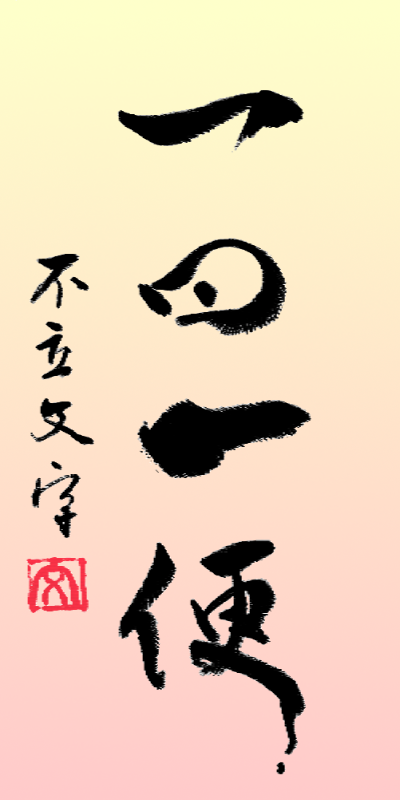 一日一便
不立文字